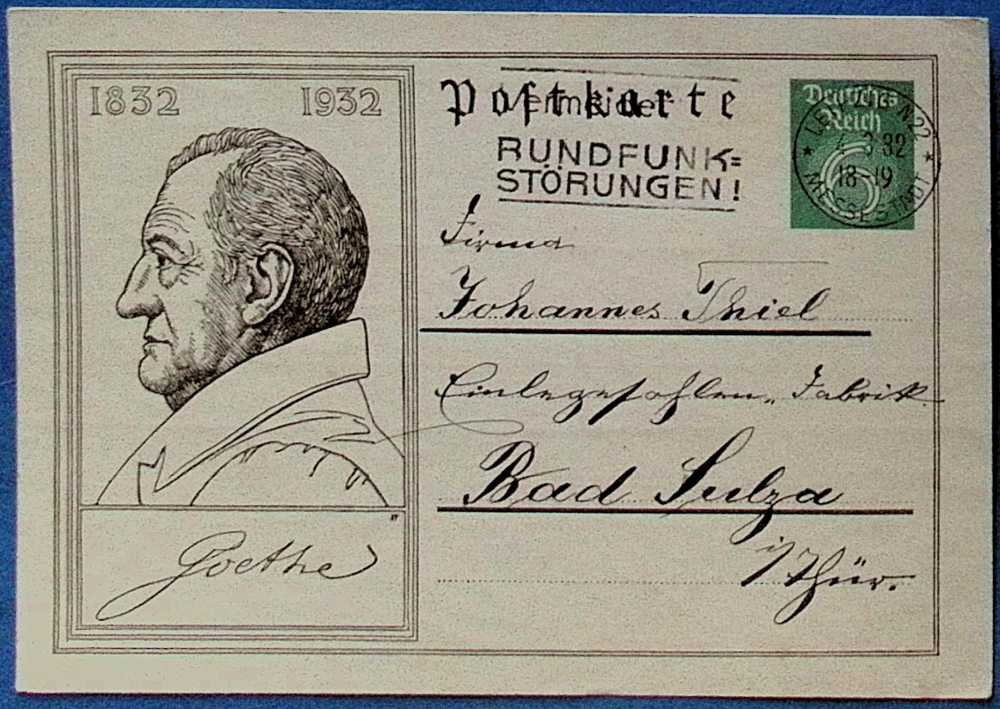 1832 1932
Goethe
Postkarte
Vermeidet
RUNDFUNK=
STÖRUNGEN!
Deutsches
Reich
6
N22
18-19
MESSESTADT
Firma
Johannes Thiel
Einlegesohlen-Fabrik
Bad Sulza
i/Thür.